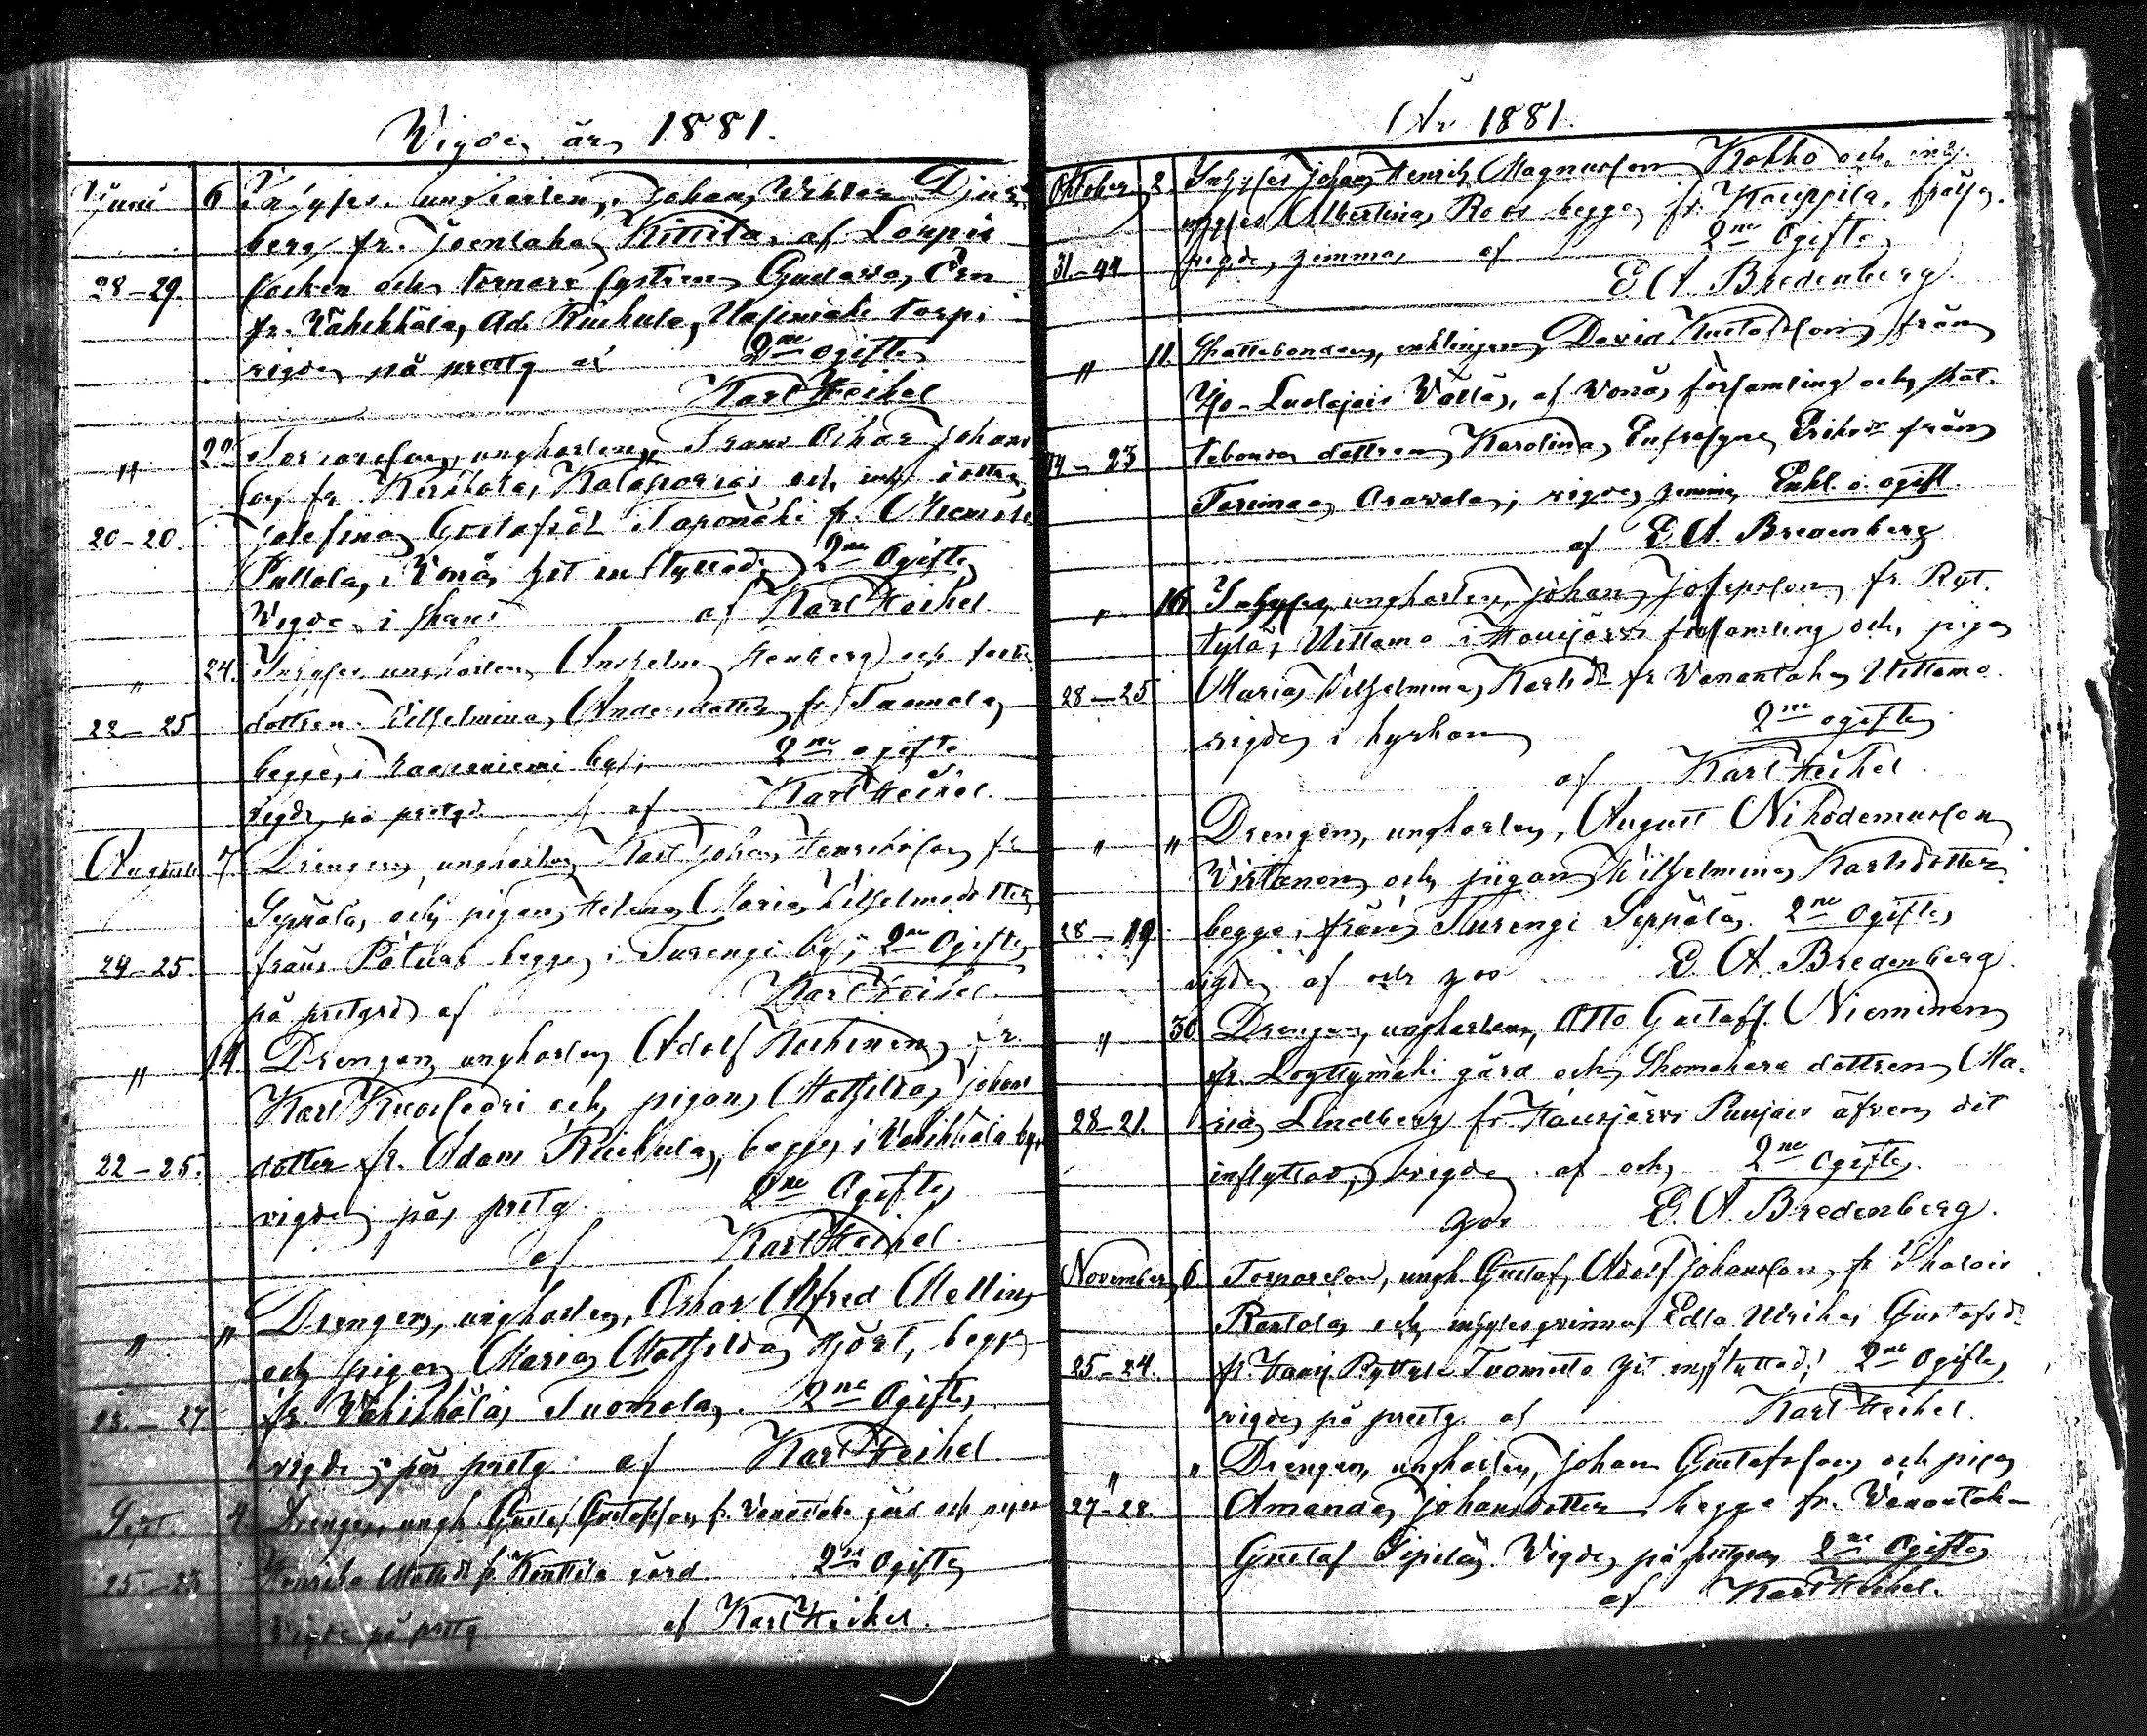 Vigde år 1881.
Juni 6 Inhyses ungkarlen, Johan Viktor Djur
berg fr. Joentaka Kittilä af Loppis
28-29. socken och tornare systren Gustava Örn
fr. Vähikkälä, Ad. Kuikula, torp.
vigde på prestg af 2ne ogifte
Karl Heikel
" 22 Torparesonen, ungkarlen, Frans Oskar Johans
son fr. Kerkkola, och inhys dottren
20-20. Josefina Gustafsdr Tapomäki fr.
Pullola, i Vånå, hit inflyttad; 2ne Ogifte
Vigde i af Karl Heikel
" 24. Inhyses ungkarlen Anshelm Stenberg och
22-25 dottren Vilhelmina Andersdotter fr Tuomola
begge, i Haapaniemi by; 2ne ogifte
vigde på prstgd af Karl Heikel.
Augusti 7. Drengen, ungkarlen Karl Johan Henriksson fr
Seppälä, och pigan Helena Maria Vilhelmsdotter
29-25. från Pätilä begge i Turengi by; 2ne Ogifte
på prstgrd af Karl Heikel.
" 14. Drengen, ungkarlen Adolf fr.
Karl och pigan Mathilda Johans
22-25. dotter fr. Adam Kuikula, begge i Vähikkälä by,
vigde på prstg 2ne Ogifte
af Karl Heikel.
" " Drengen, ungkarlen, Oskar Alfred Mellin
och pigan Maria Mathilda Hjört, begge
-27 fr. Vähikkälä, Tuomola. 2ne Ogifte
vigde på prstg af Karl Heikel
Sept. 4 Drengen, ungk. Gustaf Gustafsson fr. Vanantaka gård och pigan
25- Henrika Mattsdr fr. Kenttilä gård 2ne Ogifte
Vigde på prstg af Karl Heikel.
År 1881.
Oktober 2. Inhyses Johan Henrik Magnusson Kokko och inh.
Albertina Roos begge fr. Kauppila,
31-44 vigde, hemma, af 2ne Ogifte
E. A. Bredenberg.
" 11. Skattebonden, enklingen David Gustafsson från
Yso-Luolajais Välläs, af Vånå församling och skat.
44-23 tebonde dottren Karolina Eufrosyne Eriksdr från
Torimaa Oravala; vigde hemma Enkl. o. ogift.
af E. A. Bredenberg
" 16 Inhyses ungkarlen, Johan Josepsson fr. Ryt.
tylä, Uittamo i Hausjärvi församling och pigan
28-25 Maria Vilhelmina Karlsdr fr Vanantaka Uittamo.
vigde i kyrkan 2ne ogifte
af Karl Heikel.
" " Drengen, ungkarlen, August Nikodemusson
Virtanen och pigan Vilhelmina Karlsdotter
28-19. begge, från Turengi Seppälä. 2ne Ogifte
vigde af och hos E. A. Bredenberg.
" 30 Drengen, ungkarlen, Otto Gustafs. Nieminen
fr. Löyttymäki gård och Skomakare dottren Ma.
28-21. ria Lindberg fr. Hausjärvi Puujais äfven dit
inflyttad; vigde af och 2ne Ogifte.
hos E. A. Bredenberg.
November 6. Torpareson, ungk. Gustaf Adolf Johansson fr.
Rantola och inhyseqvinna Edla Ulrika Gustafsdr
25-24. fr. Hausj. Ryttylä Tuomisto hit inflyttad; 2ne Ogifte
vigde på prestg af Karl Heikel.
" " Drengen, ungkarlen, Johan Gustafsson och pigan
27-28. Amanda Johansdotter, begge fr. Vanantaka
Gustaf Pipilä. Vigde på prstgrd 2ne Ogifte
af Karl Heikel.